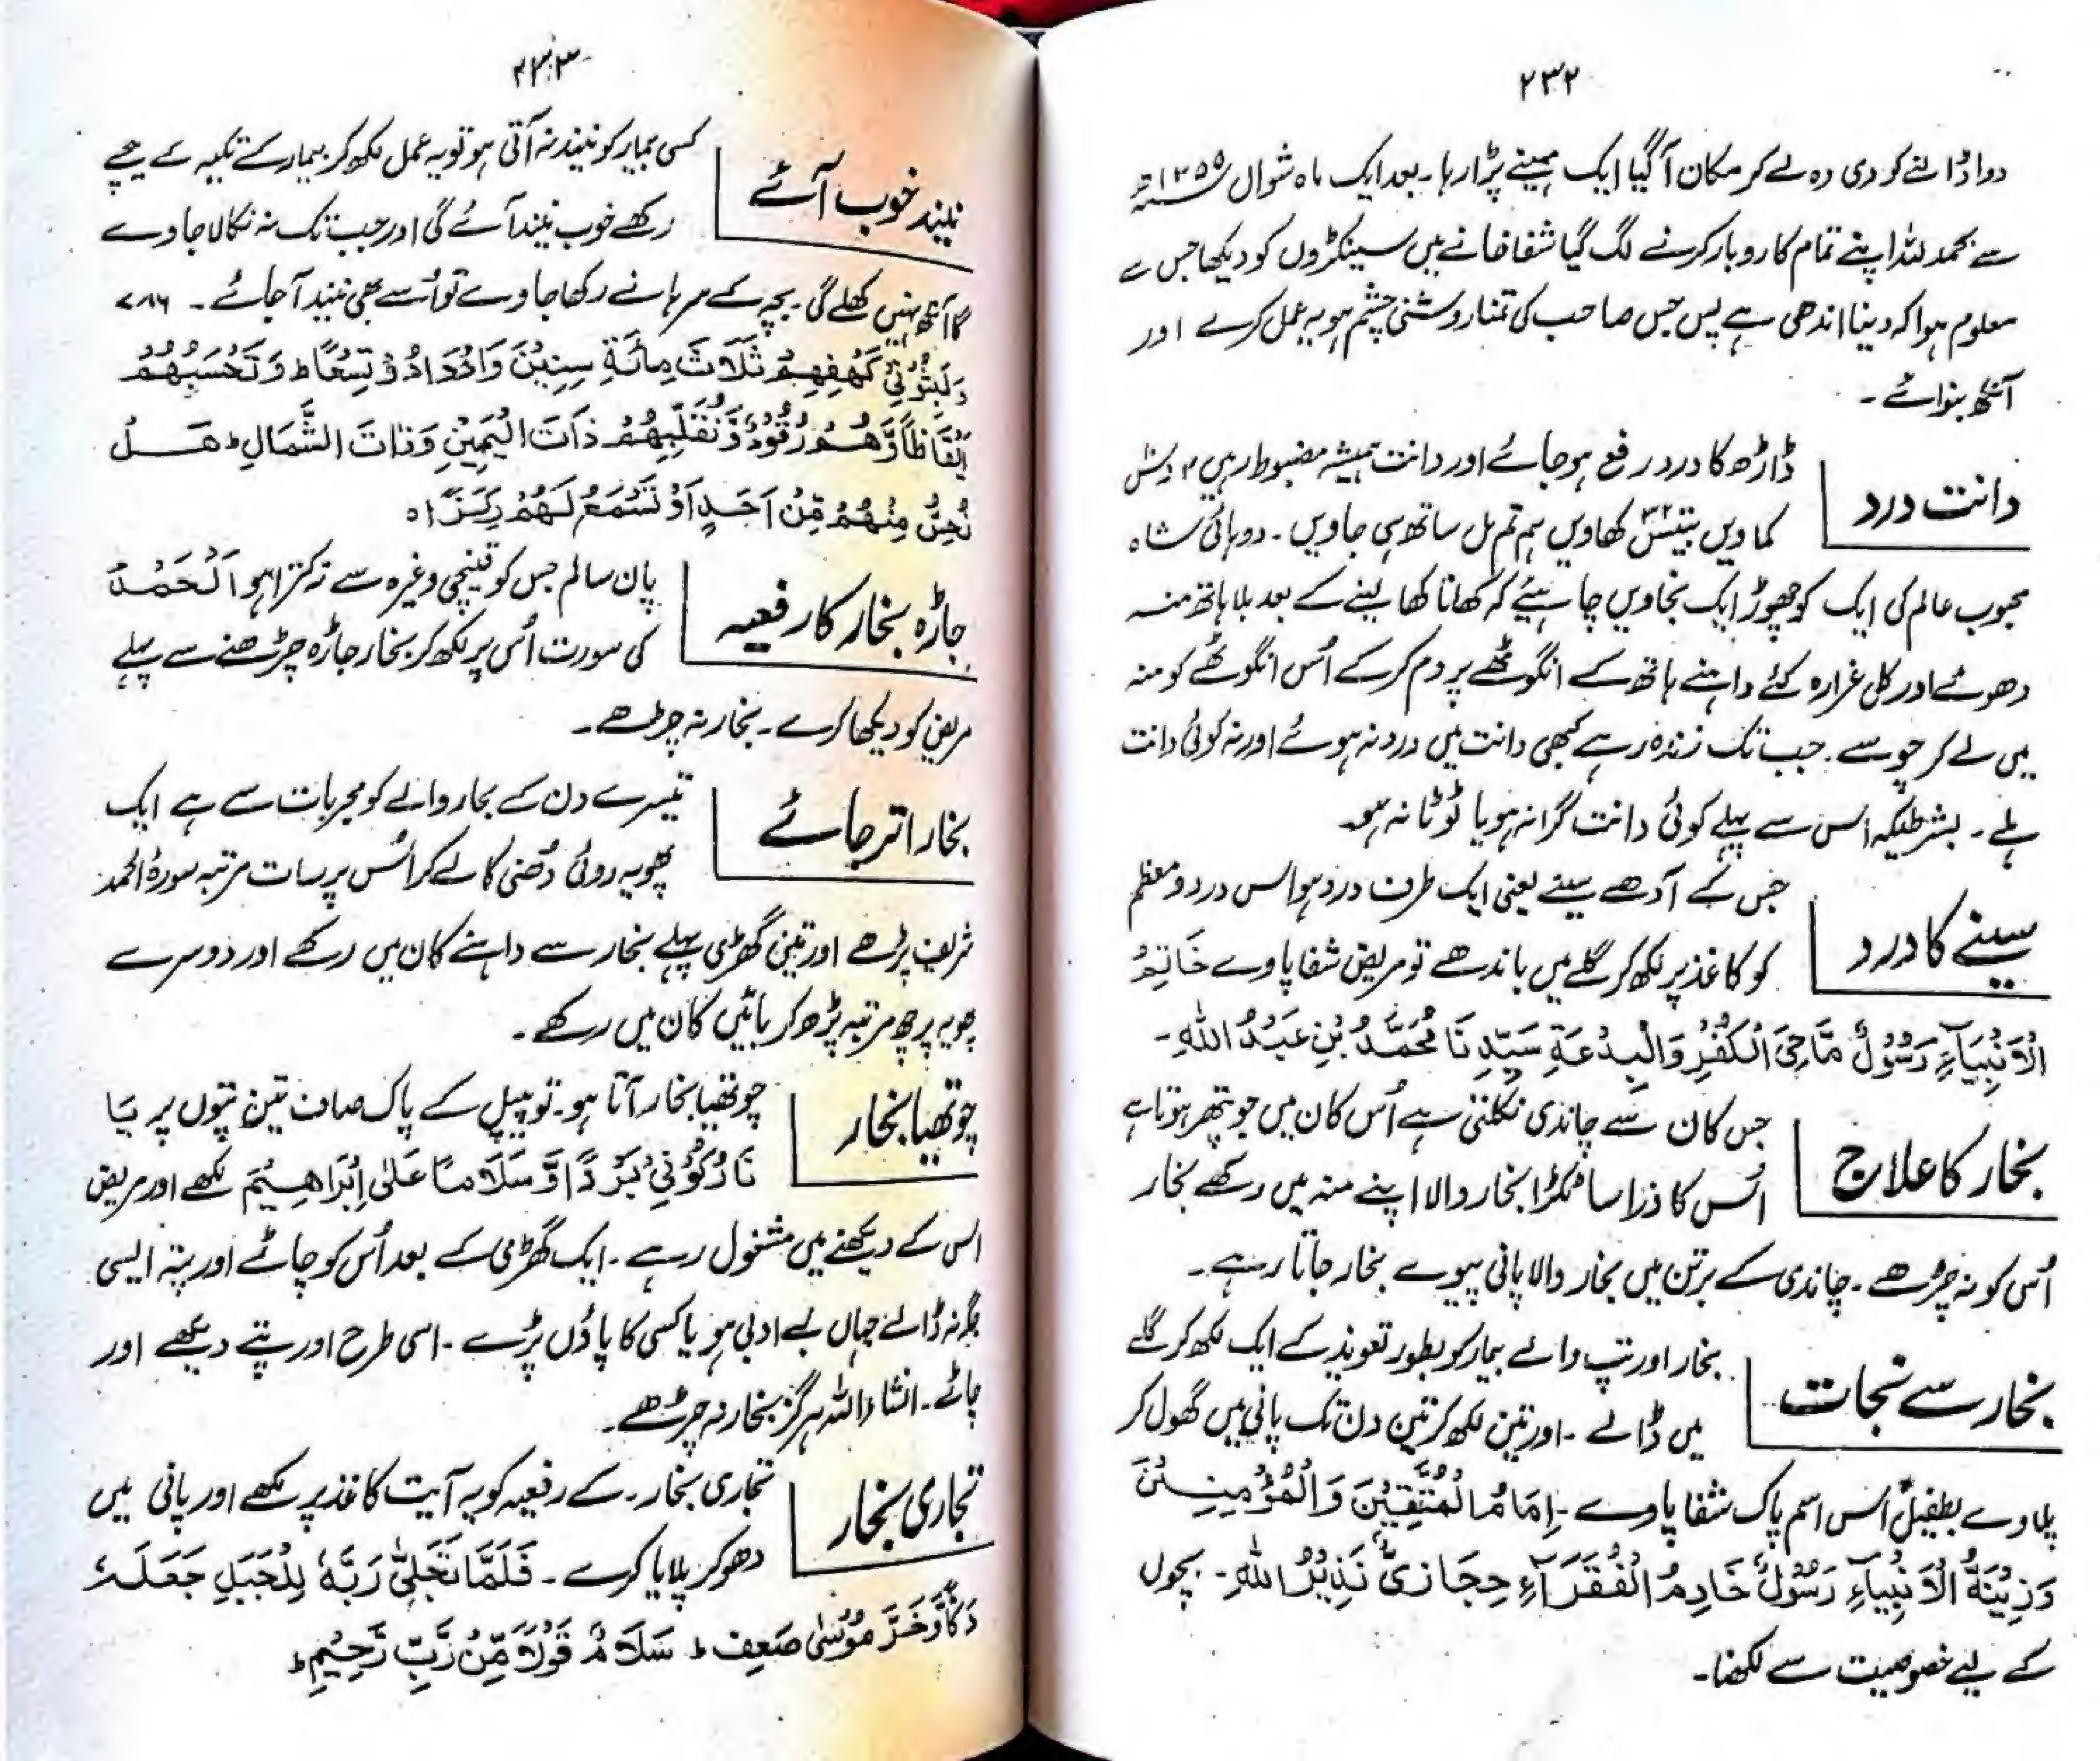 ۲۳۲
دوا ڈالنے کو دی وہ لے کر مکان آگیا ایک مہینے پڑا رہا۔ بعد ایک ماہ شوال ۱۳۵۹ھ
سے بحمد للہ اپنے تمام کاروبار کرنے لگ گیا شفا خانے میں سینکڑوں کو دیکھا جس سے
معلوم ہوا کہ دنیا اندھی ہے پس جس صاحب کی تمنا روشنی چشم ہو یہ عمل کرے اور
آنکھ بنوائے۔
دانت درد
ڈاڑھ کا درد رفع ہو جائے اور دانت ہمیشہ مضبوط رہیں
کماویں بتیس ۳۲ کھاویں ہم تم مل ساتھ ہی جاویں۔ دوہائی شاہ
محبوب عالم کی ایک کو چھوڑ ایک نجاویں چاہیئے کہ کھانا کھا لینے کے بعد بلا ہاتھ منہ
دھوئے اور کلی غرارہ کئے داہنے ہاتھ کے انگوٹھے پر دم کر کے اُس انگوٹھے کو منہ
میں لے کر چوسے۔ جب تک زندہ رہے کبھی دانت میں درد نہ ہوئے اور نہ کوئی دانت
ہلے۔ بشرطیکہ اس سے پہلے کوئی دانت گرا نہ ہو یا ٹوٹا نہ ہو۔
سینے کا درد
جس کے آدھے سینے یعنی ایک طرف درد ہو اس درد و معظم
کو کاغذ پر لکھ کر گلے میں باندھے تو مریض شفا پاوے خَاتِمُ
الْاَنْبِيَآءِ رَسُوْلٌ مَّاحِیَ الْكُفْرِ وَالْبِدْعَةِ سَيِّدِنَا مُحَمَّدُ بْنِ عَبْدُ اللّٰهِ۔
بخار کا علاج
جس کان سے چاندی نکلتی ہے اُس کان میں جو پتھر ہوتا ہے
اُس کا ذرا سا ٹکڑا بخار والا اپنے منہ میں رکھے بخار
اُس کو نہ چڑھے۔ چاندی کے برتن میں بخار والا پانی پیوے بخار جاتا رہے۔
بخار سے نجات
بخار اور تپ والے بیمار کو بطور تعویذ کے ایک لکھ کر گلے
میں ڈالے۔ اور تین لکھ کر تین دن تک پانی میں گھول کر
پلاوے بطفیل اس اسم پاک شفا پاوے۔ اِمَامُ الْمُتَّقِيْنَ وَالْمُؤْمِنِيْنَ
وَزِيْنَةُ الْاَنْبِيَآءِ رَسُوْلٌ خَادِمُ الْفُقَرَآءِ حِجَازِیٌّ نَذِيْرُ اللّٰهِ۔ بچوں
کے لیے خصوصیت سے لکھنا۔
۲۳۳
نیند خوب آئے
کسی بیمار کو نیند نہ آتی ہو تو یہ عمل لکھ کر بیمار کے تکیہ کے نیچے
رکھے خوب نیند آئے گی اور جب تک نہ نکالا جاوے
گا آنکھ نہیں کھلے گی۔ بچہ کے سرہانے رکھا جاوے تو اُسے بھی نیند آ جائے۔ ۷۸۶
وَلَبِثُوْا فِیْ كَهْفِهِمْ ثَلَاثَ مِائَةٍ سِنِيْنَ وَازْدَادُوْا تِسْعًا ط وَتَحْسَبُهُمْ
اَيْقَاظًا وَّهُمْ رُقُوْدٌ وَّنُقَلِّبُهُمْ ذَاتَ الْيَمِيْنِ وَذَاتَ الشَّمَالِ ط هَلْ
تُحِسُّ مِنْهُمْ مِّنْ اَحَدٍ اَوْ تَسْمَعُ لَهُمْ رِكْزًا ہ
جاڑہ بخار کا رفعیہ
پان سالم جس کو قینچی وغیرہ سے نہ کترا ہو اَلْحَمْدُ
کی سورت اُس پر لکھ کر بخار جاڑہ چڑھنے سے پہلے
مریض کو دیکھا کرے۔ بخار نہ چڑھے۔
بخار اتر جائے
تیسرے دن کے بخار والے کو مجربات سے ہے ایک
پھویہ روئی دُھنی کا لے کر اُس پر سات مرتبہ سورۂ الحمد
شریف پڑھے اور تین گھڑی پہلے بخار سے داہنے کان میں رکھے اور دوسرے
پھویہ پر چھ مرتبہ پڑھ کر بائیں کان میں رکھے۔
چوتھیا بخار
چوتھیا بخار آتا ہو۔ تو پیپل کے پاک صاف تین پتوں پر یَا
نَارُ كُوْنِیْ بَرْدًا وَّ سَلَامًا عَلٰی اِبْرَاهِيْمَ لکھے اور مریض
اس کے دیکھنے میں مشغول رہے۔ ایک گھڑی کے بعد اُس کو چاٹے اور پتہ ایسی
جگہ نہ ڈالے جہاں بے ادبی ہو یا کسی کا پاؤں پڑے۔ اسی طرح اور پتے دیکھے اور
چاٹے۔ انشاء اللہ ہرگز بخار نہ چڑھے۔
تجاری بخار
تجاری بخار۔ کے رفعیہ کو یہ آیت کاغذ پر لکھے اور پانی میں
دھو کر پلایا کرے۔ فَلَمَّا تَجَلّٰی رَبَّهٗ لِلْجَبَلِ جَعَلَهٗ
دَكًّا وَّخَرَّ مُوْسٰی صَعِقًا ط سَلَامٌ قَوْلًا مِّنْ رَّبٍّ رَّحِيْمٍ ط